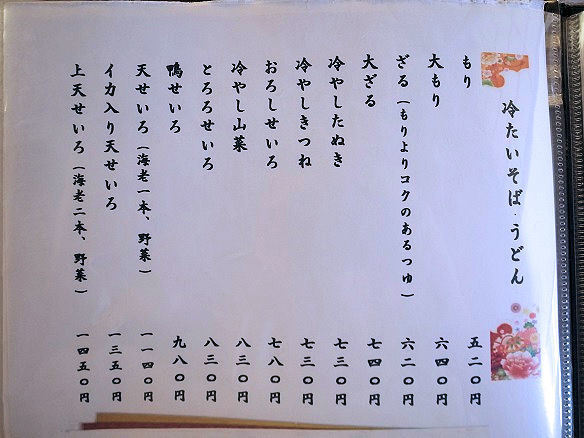 冷たいそば・うどん
もり 五二〇円
大もり 六四〇円
ざる（もりよりコクのあるつゆ） 六二〇円
大ざる 七四〇円
冷やしたぬき 七三〇円
冷やしきつね 七三〇円
おろしせいろ 七八〇円
冷やし山菜 八三〇円
とろろせいろ 八三〇円
鴨せいろ 九八〇円
天せいろ（海老一本、野菜） 一一四〇円
イカ入り天せいろ 一三五〇円
上天せいろ（海老二本、野菜） 一四五〇円